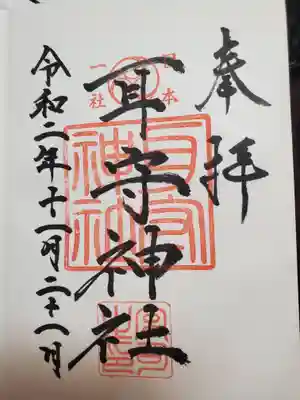 奉拝
日本
一社
耳守神社
耳守
神社
令和二年十一月二十八日